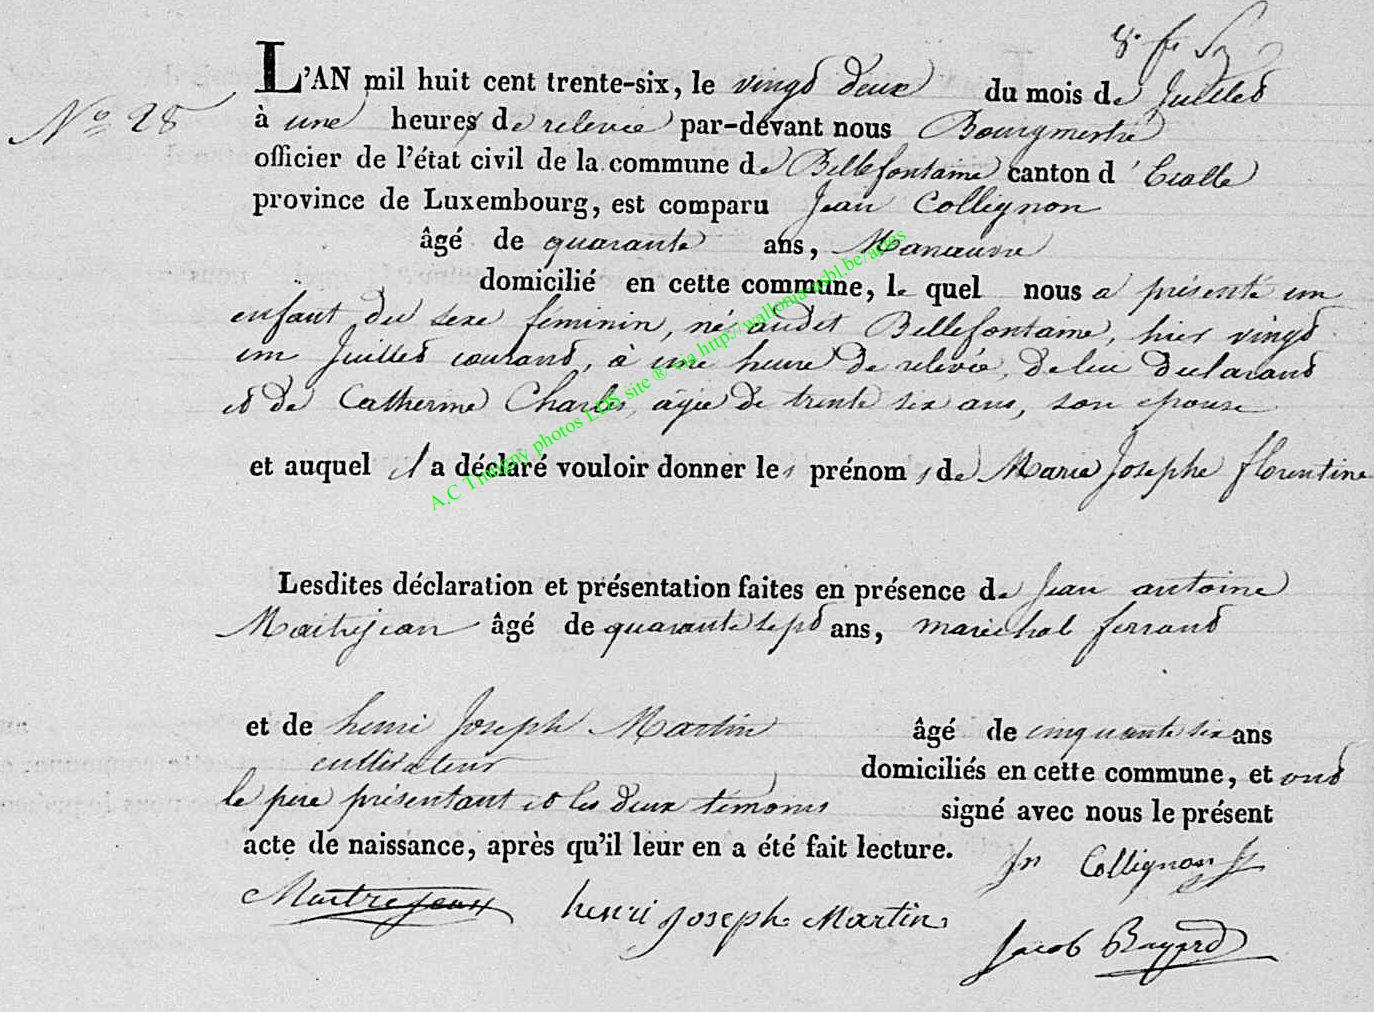 L'AN mil huit cent trente-six, le vingt deux du mois de Juillet
N° 28
à une heures de relevée par-devant nous Bourgmestre
officier de l'état civil de la commune de Bellefontaine canton d'Etalle
province de Luxembourg, est comparu Jean Collignon
âgé de quarante ans, Manœuvre
domicilié en cette commune, le quel nous a présenté un
enfant du sexe feminin, né audit Bellefontaine, hier vingt
un Juillet courant, à une heure de relevée, de lui declarant
et de Catherine Charles, agée de trente six ans, son epouse
et auquel il a déclaré vouloir donner les prénoms de Marie Josephe florentine
Lesdites déclaration et présentation faites en présence de Jean antoine
Maitrejean âgé de quarante sept ans, maréchal ferrant
et de henri Joseph Martin âgé de cinquante six ans
cultivateur domiciliés en cette commune, et ont
le pere présentant et les deux témoins signé avec nous le présent
acte de naissance, après qu'il leur en a été fait lecture. Jn Collignon
Maitrejean henri joseph Martin
Jacob Bayard
A.C Thintigny photos LDS site ® via http://wallonia-asbl.be/actes